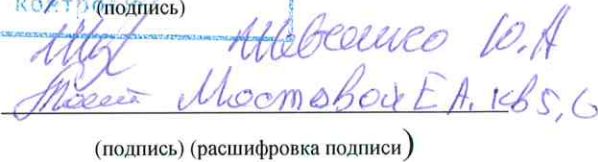 (подпись)
Шевченко Ю.А
Мостовой Е.А. кв 5,6
(подпись) (расшифровка подписи)